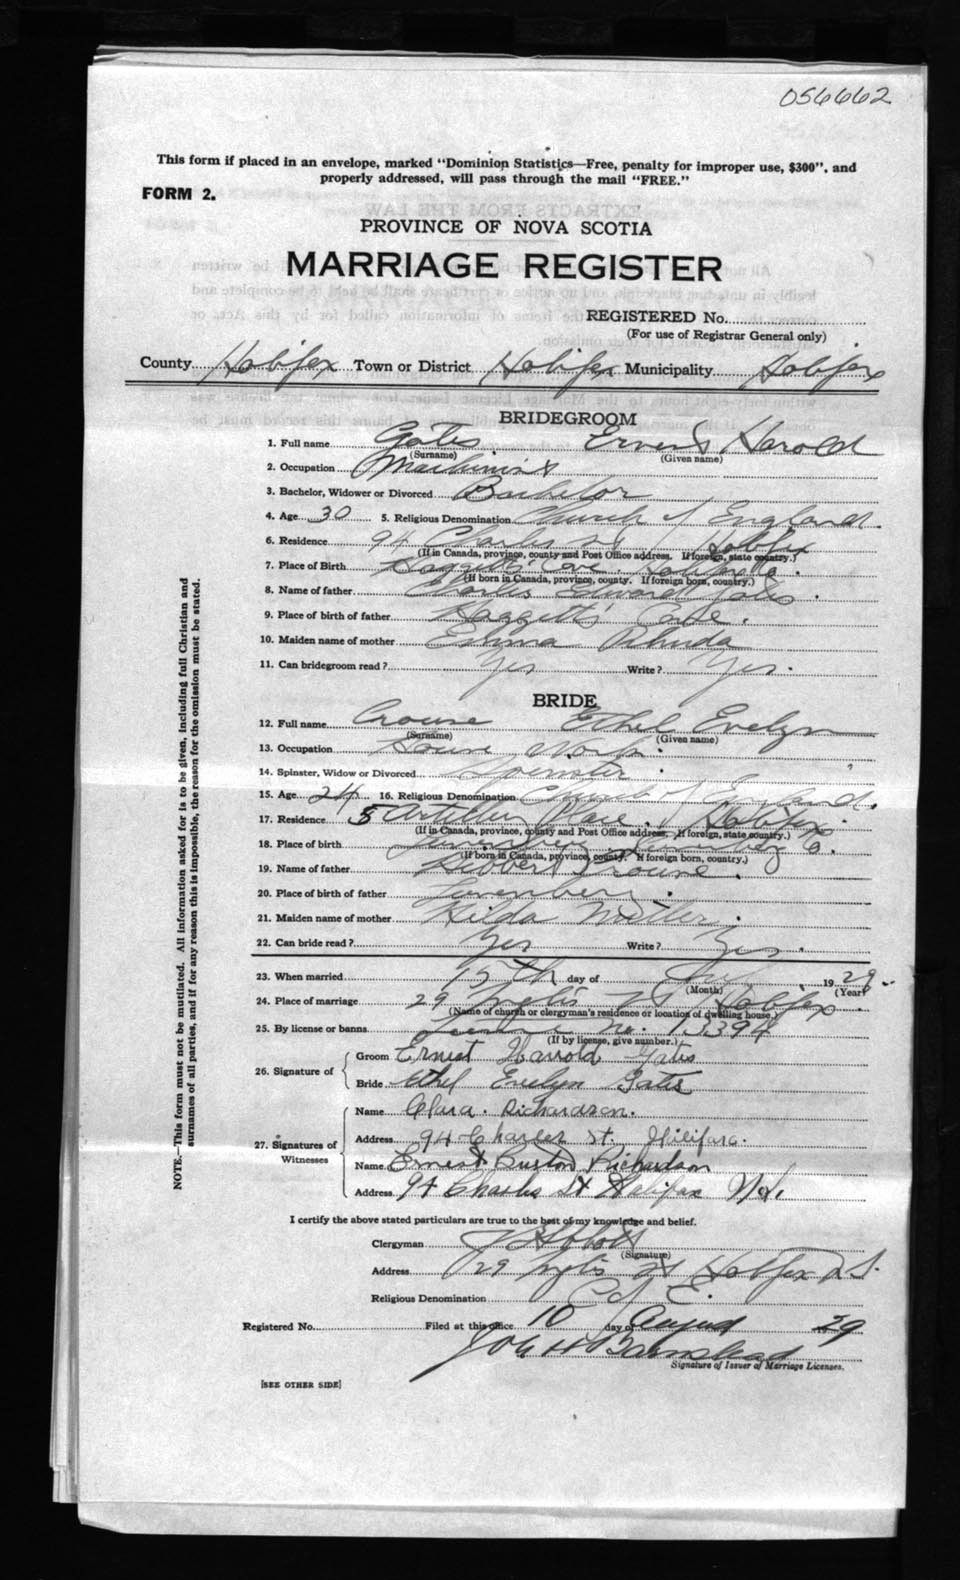 056662
This form if placed in an envelope, marked "Dominion Statistics—Free, penalty for improper use, $300", and
properly addressed, will pass through the mail "FREE."
FORM 2.
PROVINCE OF NOVA SCOTIA
MARRIAGE REGISTER
REGISTERED No.
(For use of Registrar General only)
County Halifax Town or District Halifax Municipality Halifax
BRIDEGROOM
1. Full name Gates Ernest Harold
(Surname) (Given name)
2. Occupation Machinist
3. Bachelor, Widower or Divorced Bachelor
4. Age 30 5. Religious Denomination Church of England.
6. Residence 94 Charles St Halifax
(If in Canada, province, county and Post Office address. If foreign, state country.)
7. Place of Birth Haggett's Cove. Halifax Co.
(If born in Canada, province, county. If foreign born, country.)
8. Name of father Charles Edward Gates.
9. Place of birth of father Haggett's Cove.
10. Maiden name of mother Emma Rhuda
11. Can bridegroom read? Yes Write? Yes.
BRIDE
12. Full name Crouse Ethel Evelyn
(Surname) (Given name)
13. Occupation House Work.
14. Spinster, Widow or Divorced Spinster.
15. Age 24 16. Religious Denomination Church of England.
17. Residence 5 Artillery Place. Halifax.
(If in Canada, province, county and Post Office address. If foreign, state country.)
18. Place of birth Lunenburg Lunenburg Co.
(If born in Canada, province, county. If foreign born, country.)
19. Name of father Hibbert Crouse.
20. Place of birth of father Lunenburg.
21. Maiden name of mother Hilda
22. Can bride read? Yes Write? Yes.
23. When married day of 1929.
(Month) (Year)
24. Place of marriage 29 Inglis St Halifax.
(Name of church or clergyman's residence or location of dwelling house)
25. By license or banns License No. 13394
(If by license, give number.)
26. Signature of
Groom Ernest Harrold Gates
Bride Ethel Evelyn Gates
27. Signatures of Witnesses
Name Clara. Richardson.
Address 94 Charles St.
Name Ernest Burton Richardson
Address 94 Charles St Halifax N.S.
I certify the above stated particulars are true to the best of my knowledge and belief.
Clergyman
(Signature)
Address 29 Inglis St Halifax N.S.
Religious Denomination C of E.
Registered No. Filed at this office 10 day of August 1929
Signature of Issuer of Marriage Licenses.
[SEE OTHER SIDE]
NOTE.—This form must not be mutilated. All information asked for is to be given, including full Christian and
surnames of all parties, and if for any reason this is impossible, the reason for the omission must be stated.